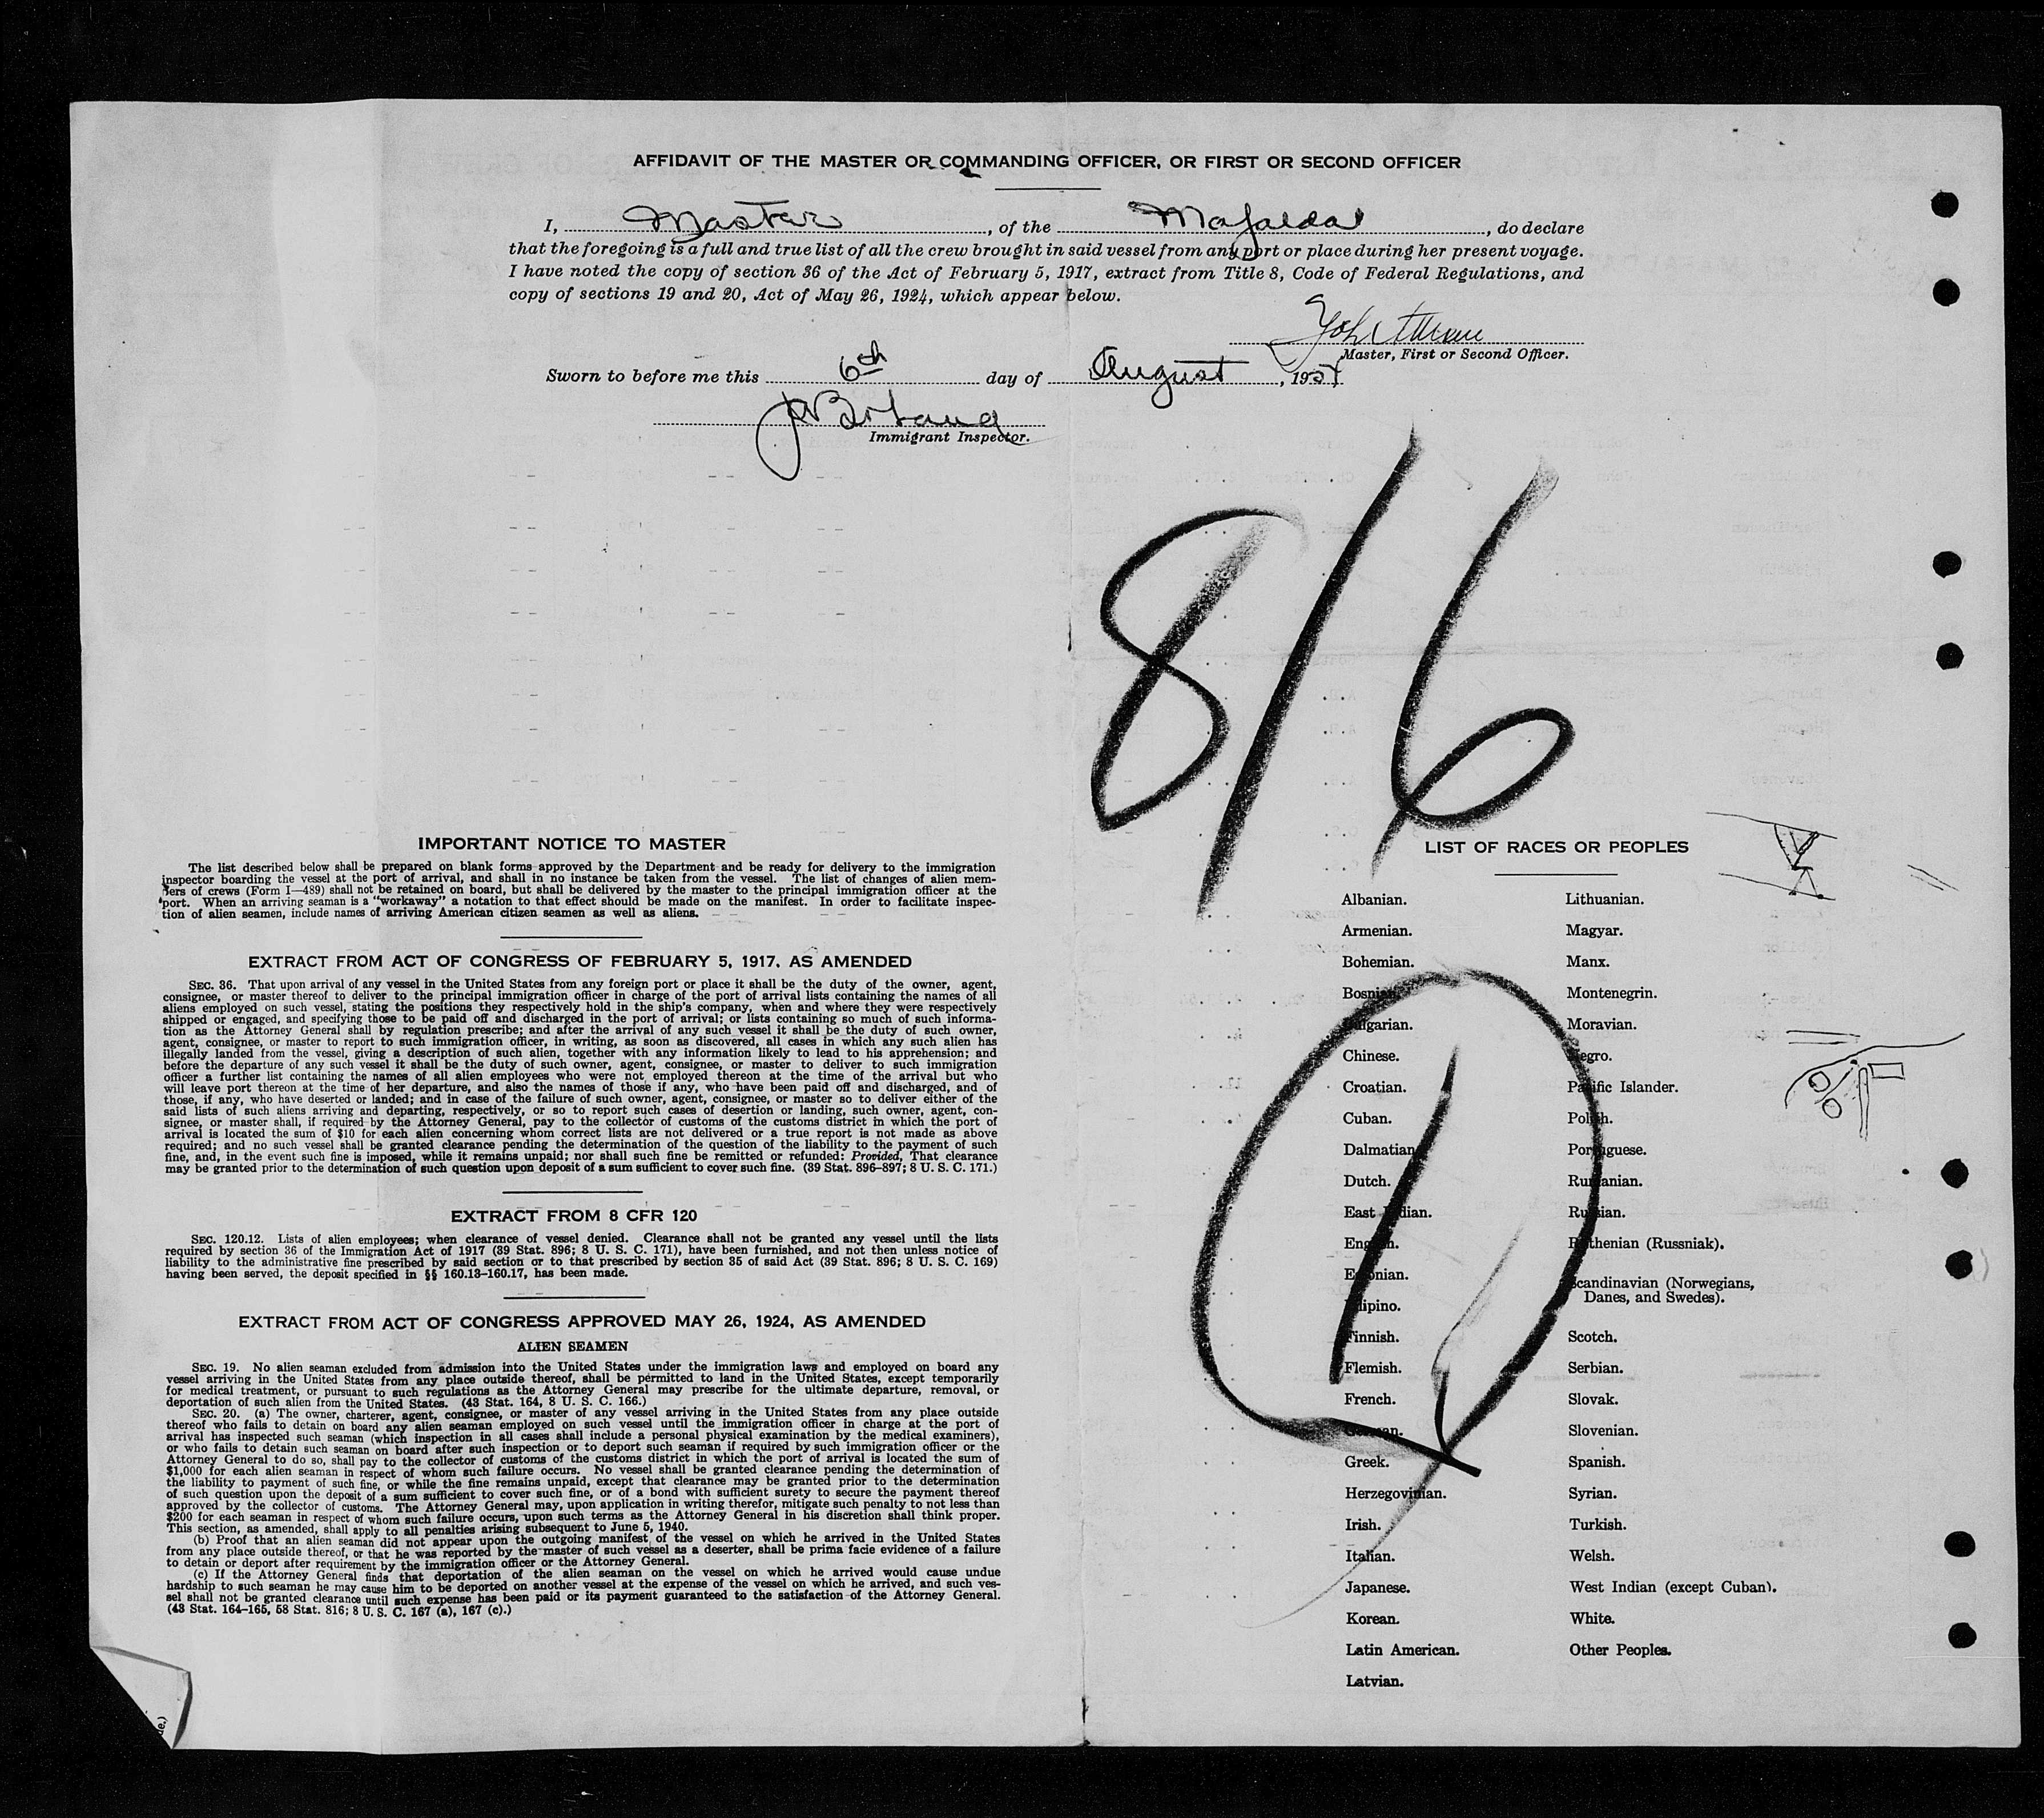 AFFIDAVIT OF THE MASTER OR COMMANDING OFFICER, OR FIRST OR SECOND OFFICER
I, Master, of the Mafalda, do declare
that the foregoing is a full and true list of all the crew brought in said vessel from any port or place during her present voyage.
I have noted the copy of section 36 of the Act of February 5, 1917, extract from Title 8, Code of Federal Regulations, and
copy of sections 19 and 20, Act of May 26, 1924, which appear below.
Master, First or Second Officer.
Sworn to before me this 6th day of August, 195
Immigrant Inspector.
8/6
1
IMPORTANT NOTICE TO MASTER
The list described below shall be prepared on blank forms approved by the Department and be ready for delivery to the immigration
inspector boarding the vessel at the port of arrival, and shall in no instance be taken from the vessel. The list of changes of alien mem-
bers of crews (Form I—489) shall not be retained on board, but shall be delivered by the master to the principal immigration officer at the
port. When an arriving seaman is a "workaway" a notation to that effect should be made on the manifest. In order to facilitate inspec-
tion of alien seamen, include names of arriving American citizen seamen as well as aliens.
EXTRACT FROM ACT OF CONGRESS OF FEBRUARY 5, 1917, AS AMENDED
SEC. 36. That upon arrival of any vessel in the United States from any foreign port or place it shall be the duty of the owner, agent,
consignee, or master thereof to deliver to the principal immigration officer in charge of the port of arrival lists containing the names of all
aliens employed on such vessel, stating the positions they respectively hold in the ship's company, when and where they were respectively
shipped or engaged, and specifying those to be paid off and discharged in the port of arrival; or lists containing so much of such informa-
tion as the Attorney General shall by regulation prescribe; and after the arrival of any such vessel it shall be the duty of such owner,
agent, consignee, or master to report to such immigration officer, in writing, as soon as discovered, all cases in which any such alien has
illegally landed from the vessel, giving a description of such alien, together with any information likely to lead to his apprehension; and
before the departure of any such vessel it shall be the duty of such owner, agent, consignee, or master to deliver to such immigration
officer a further list containing the names of all alien employees who were not employed thereon at the time of the arrival but who
will leave port thereon at the time of her departure, and also the names of those if any, who have been paid off and discharged, and of
those, if any, who have deserted or landed; and in case of the failure of such owner, agent, consignee, or master so to deliver either of the
said lists of such aliens arriving and departing, respectively, or so to report such cases of desertion or landing, such owner, agent, con-
signee, or master shall, if required by the Attorney General, pay to the collector of customs of the customs district in which the port of
arrival is located the sum of $10 for each alien concerning whom correct lists are not delivered or a true report is not made as above
required; and no such vessel shall be granted clearance pending the determination of the question of the liability to the payment of such
fine, and, in the event such fine is imposed, while it remains unpaid; nor shall such fine be remitted or refunded: Provided, That clearance
may be granted prior to the determination of such question upon deposit of a sum sufficient to cover such fine. (39 Stat. 896–897; 8 U. S. C. 171.)
EXTRACT FROM 8 CFR 120
SEC. 120.12. Lists of alien employees; when clearance of vessel denied. Clearance shall not be granted any vessel until the lists
required by section 36 of the Immigration Act of 1917 (39 Stat. 896; 8 U. S. C. 171), have been furnished, and not then unless notice of
liability to the administrative fine prescribed by said section or to that prescribed by section 35 of said Act (39 Stat. 896; 8 U. S. C. 169)
having been served, the deposit specified in §§ 160.13–160.17, has been made.
EXTRACT FROM ACT OF CONGRESS APPROVED MAY 26, 1924, AS AMENDED
ALIEN SEAMEN
SEC. 19. No alien seaman excluded from admission into the United States under the immigration laws and employed on board any
vessel arriving in the United States from any place outside thereof, shall be permitted to land in the United States, except temporarily
for medical treatment, or pursuant to such regulations as the Attorney General may prescribe for the ultimate departure, removal, or
deportation of such alien from the United States. (43 Stat. 164, 8 U. S. C. 166.)
SEC. 20. (a) The owner, charterer, agent, consignee, or master of any vessel arriving in the United States from any place outside
thereof who fails to detain on board any alien seaman employed on such vessel until the immigration officer in charge at the port of
arrival has inspected such seaman (which inspection in all cases shall include a personal physical examination by the medical examiners),
or who fails to detain such seaman on board after such inspection or to deport such seaman if required by such immigration officer or the
Attorney General to do so, shall pay to the collector of customs of the customs district in which the port of arrival is located the sum of
$1,000 for each alien seaman in respect of whom such failure occurs. No vessel shall be granted clearance pending the determination of
the liability to payment of such fine, or while the fine remains unpaid, except that clearance may be granted prior to the determination
of such question upon the deposit of a sum sufficient to cover such fine, or of a bond with sufficient surety to secure the payment thereof
approved by the collector of customs. The Attorney General may, upon application in writing therefor, mitigate such penalty to not less than
$200 for each seaman in respect of whom such failure occurs, upon such terms as the Attorney General in his discretion shall think proper.
This section, as amended, shall apply to all penalties arising subsequent to June 5, 1940.
(b) Proof that an alien seaman did not appear upon the outgoing manifest of the vessel on which he arrived in the United States
from any place outside thereof, or that he was reported by the master of such vessel as a deserter, shall be prima facie evidence of a failure
to detain or deport after requirement by the immigration officer or the Attorney General.
(c) If the Attorney General finds that deportation of the alien seaman on the vessel on which he arrived would cause undue
hardship to such seaman he may cause him to be deported on another vessel at the expense of the vessel on which he arrived, and such ves-
sel shall not be granted clearance until such expense has been paid or its payment guaranteed to the satisfaction of the Attorney General.
(43 Stat. 164–165, 58 Stat. 816; 8 U. S. C. 167 (a), 167 (c).)
LIST OF RACES OR PEOPLES
Albanian.
Armenian.
Bohemian.
Bosnian.
Bulgarian.
Chinese.
Croatian.
Cuban.
Dalmatian.
Dutch.
East Indian.
English.
Estonian.
Filipino.
Finnish.
Flemish.
French.
German.
Greek.
Herzegovinian.
Irish.
Italian.
Japanese.
Korean.
Latin American.
Latvian.
Lithuanian.
Magyar.
Manx.
Montenegrin.
Moravian.
Negro.
Pacific Islander.
Polish.
Portuguese.
Rumanian.
Russian.
Ruthenian (Russniak).
Scandinavian (Norwegians,
Danes, and Swedes).
Scotch.
Serbian.
Slovak.
Slovenian.
Spanish.
Syrian.
Turkish.
Welsh.
West Indian (except Cuban).
White.
Other Peoples.